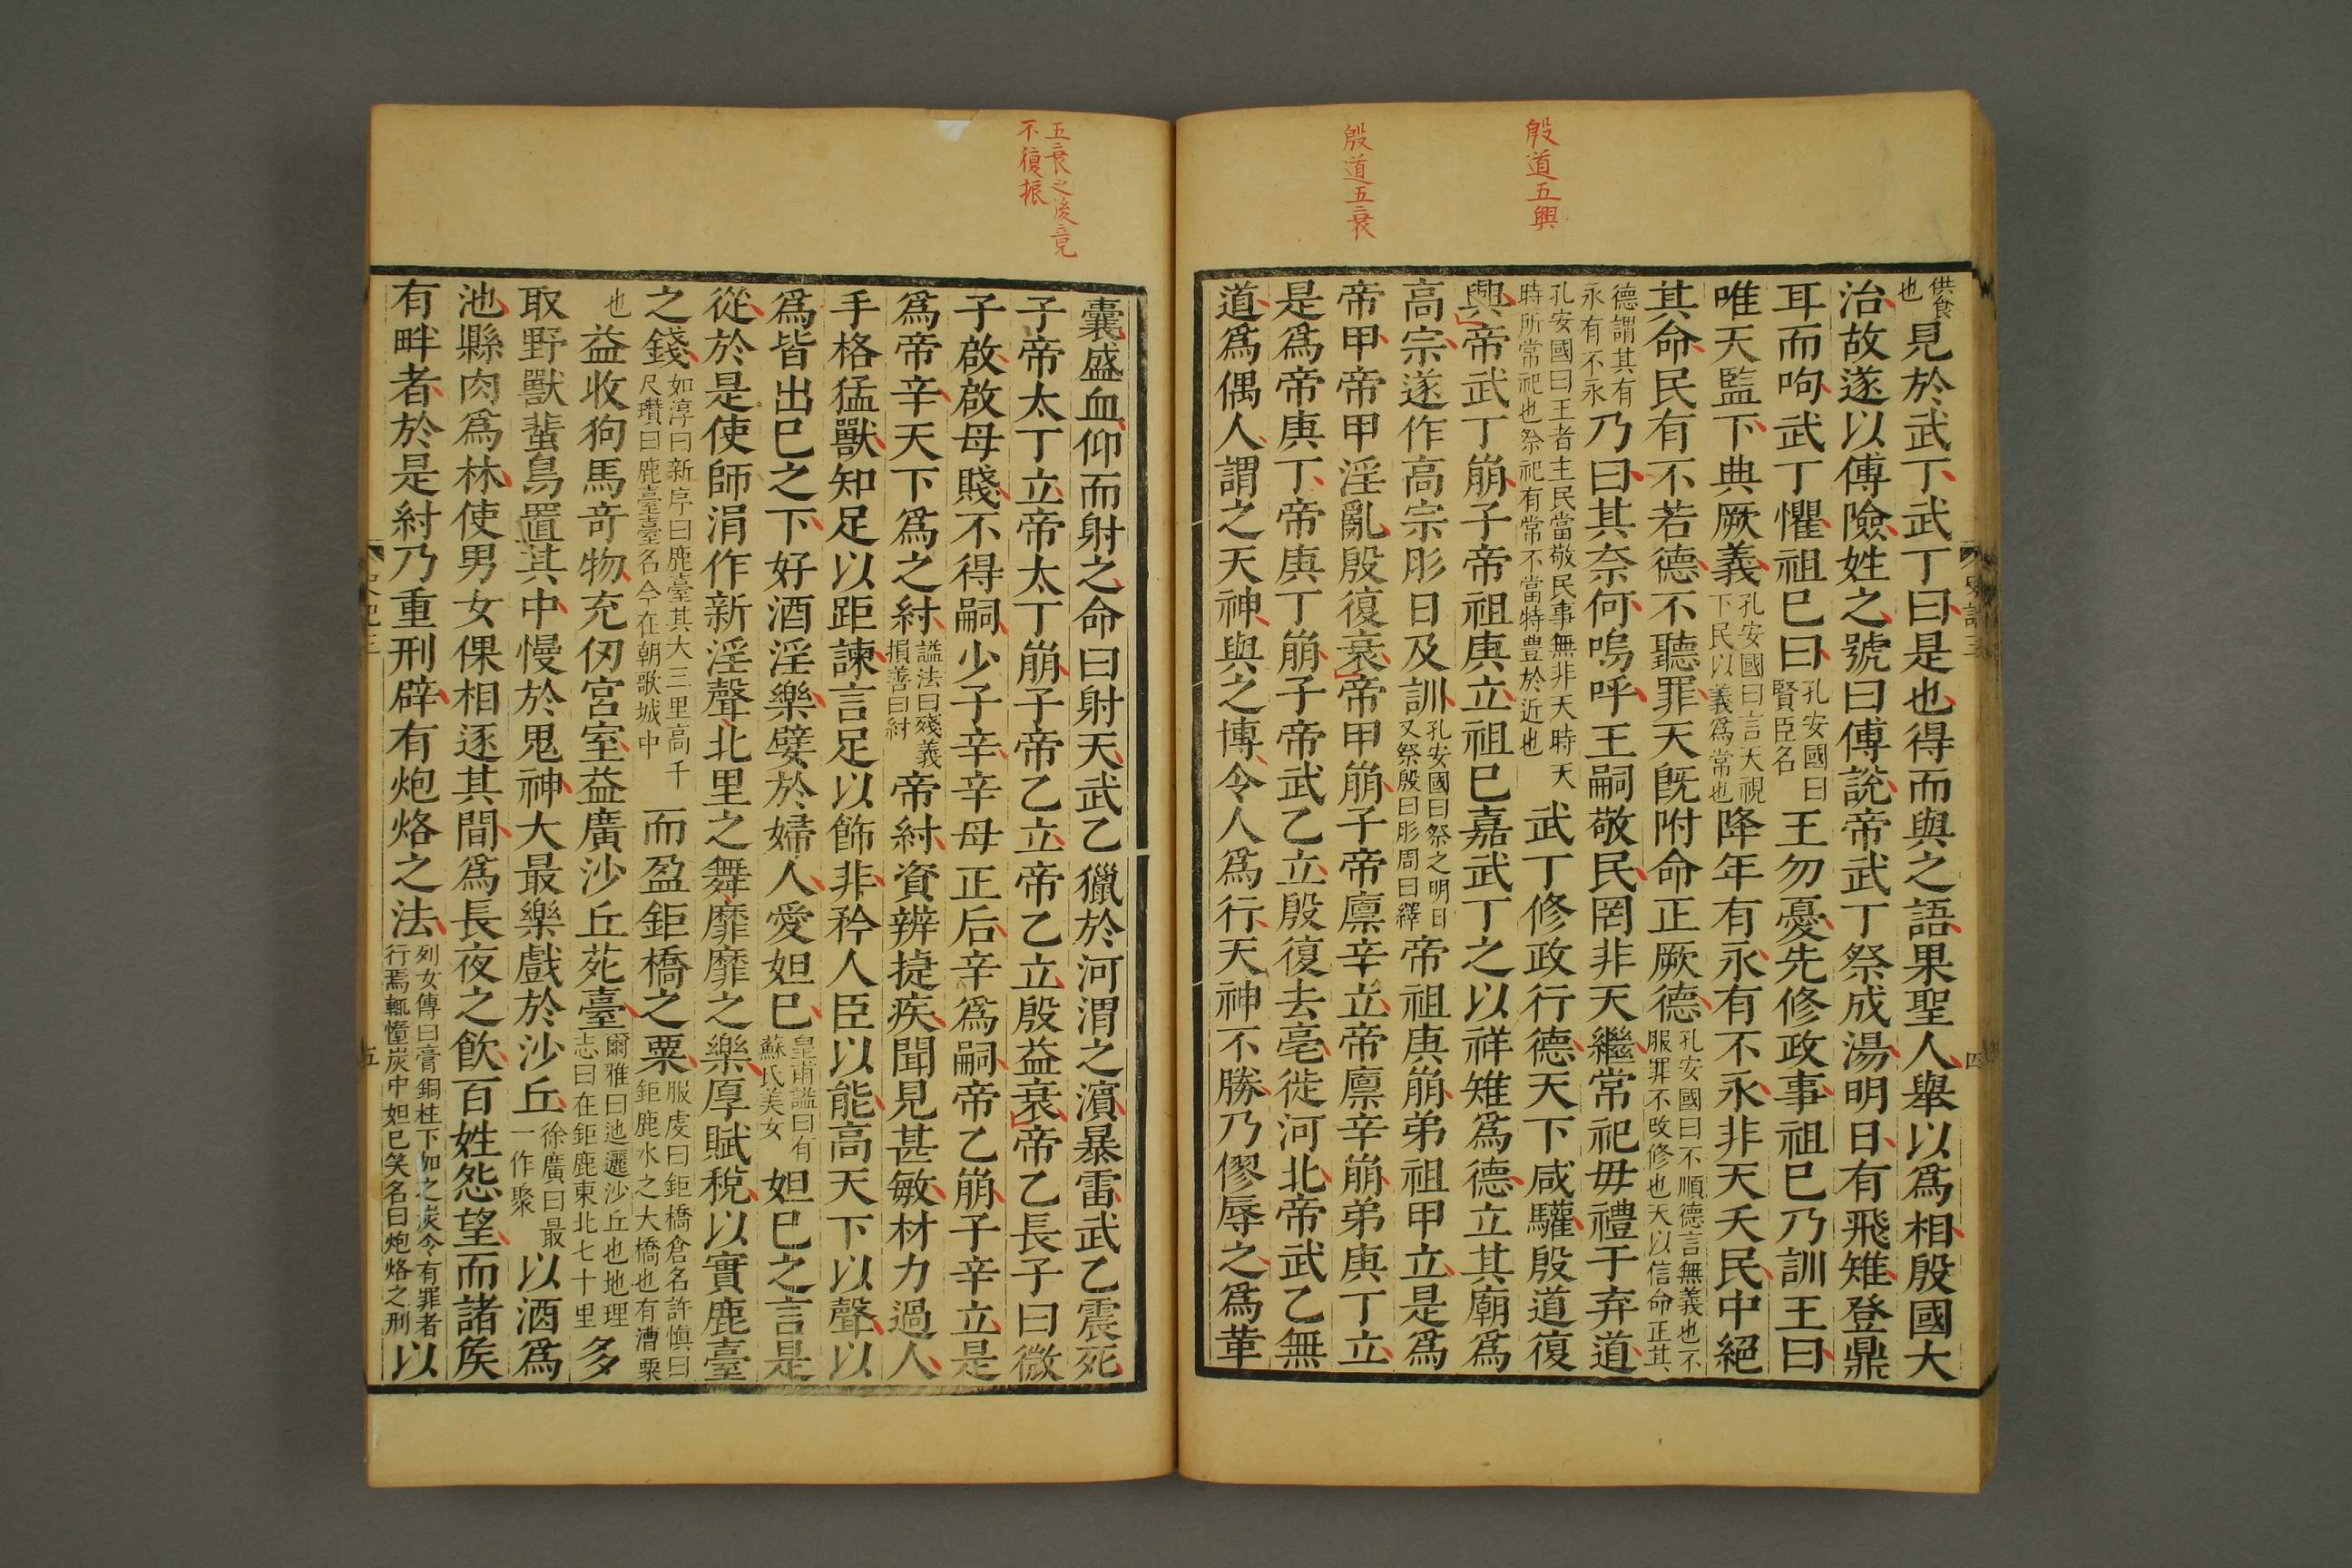 殷道五興
殷道五衰
供食
也
見於武丁武丁曰是也得而與之語果聖人舉以爲相殷國大
治故遂以傅險姓之號曰傅說帝武丁祭成湯明日有飛雉登鼎
耳而呴武丁懼祖巳曰
孔安國曰
賢臣名
王勿憂先修政事祖巳乃訓王曰
唯天監下典厥義
孔安國曰言天視
下民以義爲常也
降年有永有不永非天夭民中絕
其命民有不若德不聽罪天旣附命正厥德
孔安國曰不順德言無義也不
服罪不改修也天以信命正其
德謂其有
永有不永
乃曰其奈何嗚呼王嗣敬民罔非天繼常祀毋禮于弃道
孔安國曰王者主民當敬民事無非天時天
時所常祀也祭祀有常不當特豊於近也
武丁修政行德天下咸驩殷道復
興帝武丁崩子帝祖庚立祖巳嘉武丁之以祥雉爲德立其廟爲
高宗遂作高宗肜日及訓
孔安國曰祭之明日
又祭殷曰肜周曰繹
帝祖庚崩弟祖甲立是爲
帝甲帝甲淫亂殷復衰帝甲崩子帝廩辛立帝廩辛崩弟庚丁立
是爲帝庚丁帝庚丁崩子帝武乙立殷復去亳徙河北帝武乙無
道爲偶人謂之天神與之博令人爲行天神不勝乃僇辱之爲革
史記三
四
五衰之後竟
不復振
囊盛血仰而射之命曰射天武乙獵於河渭之濵暴雷武乙震死
子帝太丁立帝太丁崩子帝乙立帝乙立殷益衰帝乙長子曰微
子啟啟母賤不得嗣少子辛辛母正后辛爲嗣帝乙崩子辛立是
爲帝辛天下爲之紂
謚法曰殘義
損善曰紂
帝紂資辨捷疾聞見甚敏材力過人
手格猛獸知足以距諫言足以飾非矜人臣以能高天下以聲以
爲皆出巳之下好酒淫樂嬖於婦人愛妲巳
皇甫謐曰有
蘇氏美女
妲巳之言是
從於是使師涓作新淫聲北里之舞靡靡之樂厚賦稅以實鹿臺
之錢
如淳曰新序曰鹿臺其大三里高千
尺瓚曰鹿臺臺名今在朝歌城中
而盈鉅橋之粟
服虔曰鉅橋倉名許愼曰
鉅鹿水之大橋也有漕粟
也
益收狗馬奇物充仞宮室益廣沙丘苑臺
爾雅曰迆邐沙丘也地理
志曰在鉅鹿東北七十里
多
取野獸蜚鳥置其中慢於鬼神大最樂戲於沙丘
徐廣曰最
一作聚
以酒爲
池縣肉爲林使男女倮相逐其間爲長夜之飲百姓怨望而諸矦
有畔者於是紂乃重刑辟有炮烙之法
列女傳曰膏銅柱下加之炭令有罪者
行焉輒憧炭中妲巳笑名曰炮烙之刑
以
史記三
五